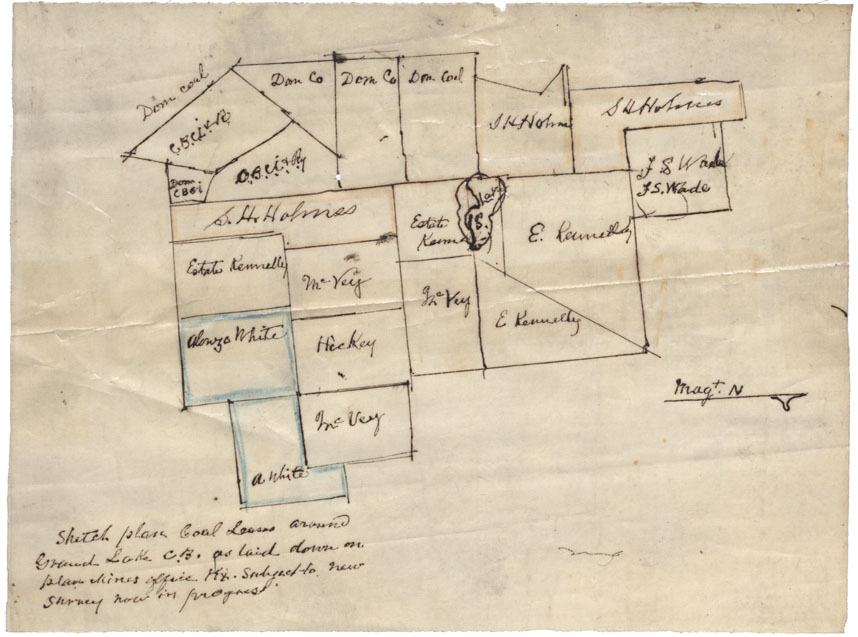 Dom coal
Dom Co
Dom Co
Dom Coal
S. H. Holm
S H Holmes
C.B.
Dom
C B
F S Wade
F.S. Wade
S. H. Holmes
Estate
E. Kennelly
Estate Kennelly
Mc Vey
Mc Vey
E Kennelly
Alonzo White
Hickey
Mc Vey
A White
Magt. N
Sketch plan Coal Leases around
Grand Lake C.B. as laid down on
plan Mines office Hx. Subject to new
survey now in progress.